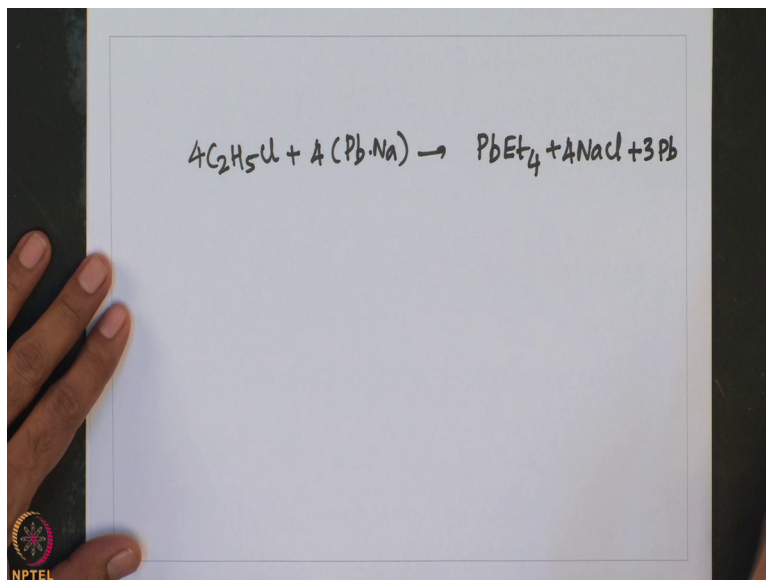 4C₂H₅Cl + 4(Pb·Na) → PbEt₄ + 4NaCl + 3Pb
NPTEL